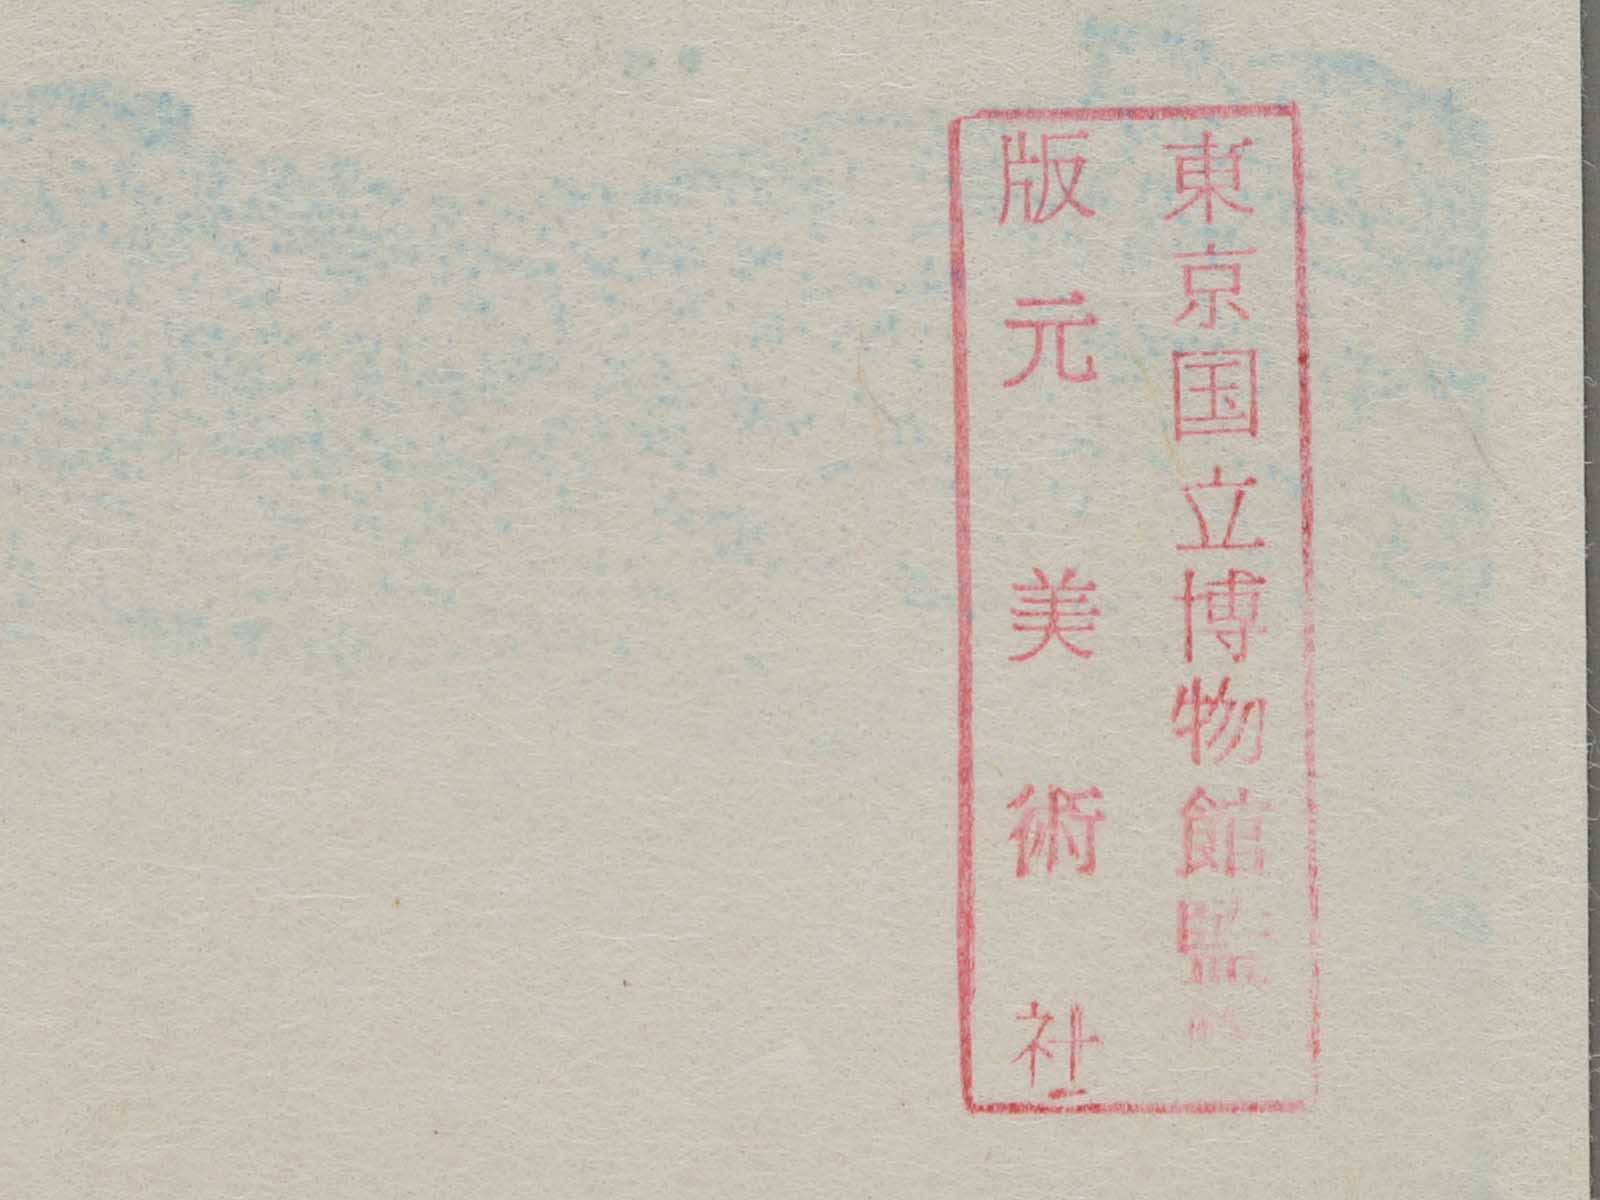 東京国立博物館監
版元美術社